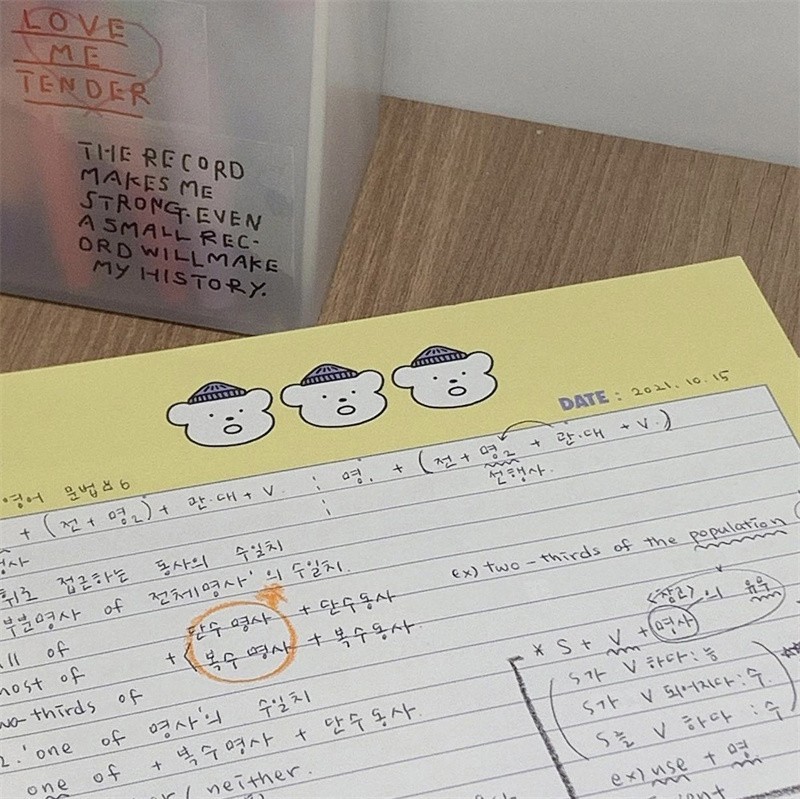 LOVE
ME
TENDER
THE RECORD
MAKES ME
STRONG. EVEN
A SMALL REC-
ORD WILL MAKE
MY HISTORY.
DATE : 2021. 10. 15
영어 문법 #6
+ (전 + 명2) + 관·대 + V. ; 명1 + (전 + 명2 + 관·대 + V.)
선행사.
접근하는 동사의 수일치
부분명사 of 전체명사'의 수일치.
ex) two-thirds of the population
all of 단수 명사 + 단수동사
most of + 복수 명사 + 복수동사.
two-thirds of
<참고> 의 유무
* S + V + 명사
S가 V 하다 : 능
S가 V 되어지다 : 수.
S를 V 하다 : 수
ex) use + 명.
2. 'one of 명사'의 수일치
one of + 복수명사 + 단수동사.
/ neither.